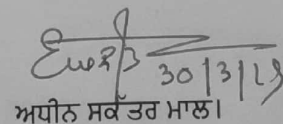 30/3/19
ਅਧੀਨ ਸਕੱਤਰ ਮਾਲ।